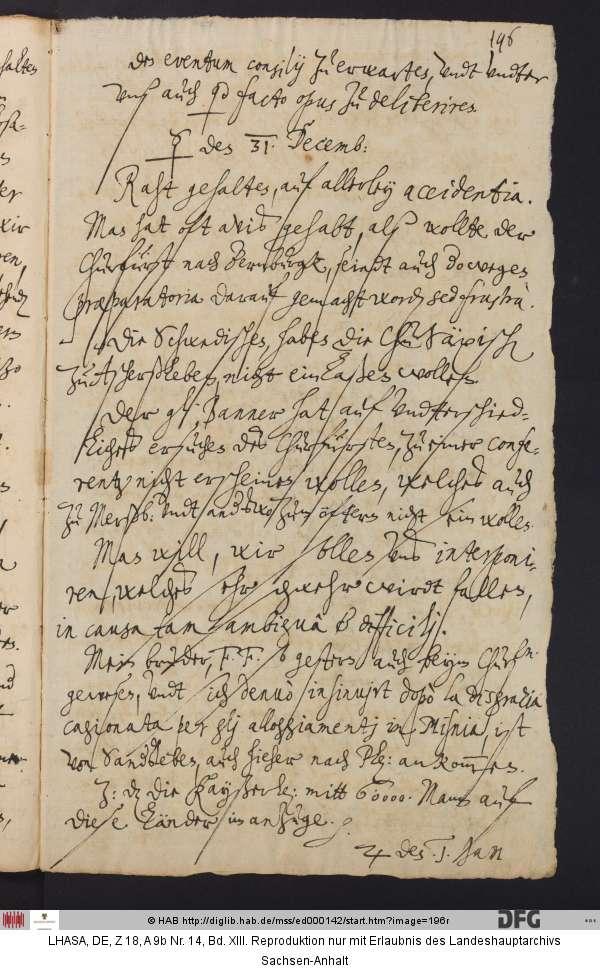 196
den eventum consilij zu erwarten, undt undter
unß auch qd facto opus zu deliberiren
☿ den 31. Decemb:
Raht gehalten, auf allerley accidentia.
Man hat oft avis gehabt, alß wollte der
Churfürst nach Bernburgk, seindt auch deswegen
præparatoria darauf gemacht worden sed frustrà.
Die Schwedischen, haben die ChurSäxisch
zu Ascherßleben, nicht einlaßen wollen
Der g Banner hat auf undterschied-
liches ersuchen des Churfürsten, zu einer confe-
rentz nicht erscheinen wollen, welches auch
zu Mersb: undt zum öftern nicht sein wollen.
Man will, wir sollen unß interponi-
ren, welches sehr schwehr wirdt fallen,
in causa tam ambiguâ & difficilj.
Mein bruder, F. F. ist gestern auch beym Churf.
gewesen, undt sich denuò insinuirt dopò la disgrazia
cagionata per glj alloggiamentj in Misnia, ist
von Sandtßleben, auch hieher nach Plg: ankommen.
Z: dz die Kayßerl: mitt 60000 Mann auf
diese Länder im anzuge.
♃ den 1. Jan
© HAB http://diglib.hab.de/mss/ed000142/start.htm?image=196r
DFG
LHASA, DE, Z 18, A 9b Nr. 14, Bd. XIII. Reproduktion nur mit Erlaubnis des Landeshauptarchivs
Sachsen-Anhalt